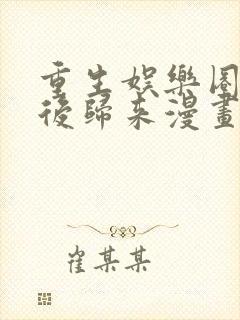 重生娛樂圈
後歸來漫畫
崔某某